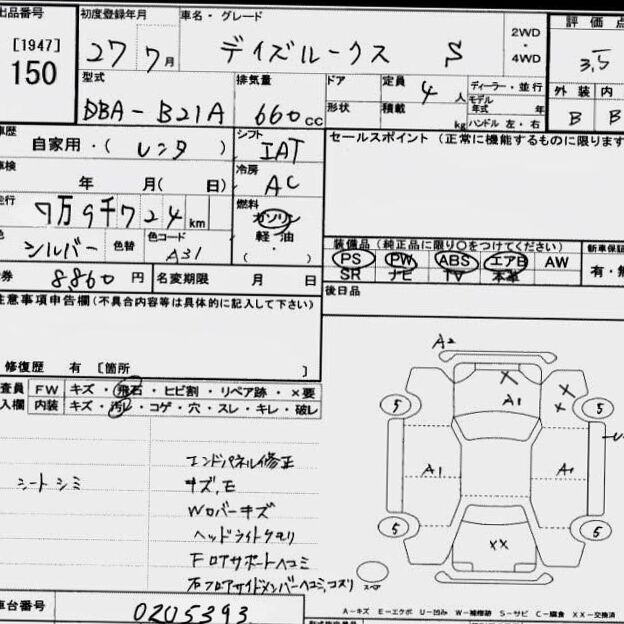 出品番号
[1947]
150
初度登録年月
27 7月
車名・グレード
デイズルークス S
2WD
・
4WD
評価点
3.5
外装 内
B B
型式
DBA-B21A
排気量
660cc
ドア
形状
定員 4人
積載 kg
ディーラー・並行
モデル年式 年
ハンドル 左・右
車歴
自家用・(レンタ)
シフト
IAT
セールスポイント(正常に機能するものに限ります
車検
年 月(日)
冷房
AC
走行
7万9千724km
燃料
ガソリン
軽・油
・( )
色
シルバー
色替
色コード
A31
装備品(純正品に限り○をつけてください)
PS PW ABS エアB AW
SR ナビ TV 本革
新車保証
有・無
券 8,860円
名変期限 月 日
後日品
注意事項申告欄(不具合内容等は具体的に記入して下さい)
修復歴 有 [箇所 ]
査員 FW キズ・飛石・ヒビ割・リペア跡・×要
入欄 内装 キズ・汚レ・コゲ・穴・スレ・キレ・破レ
シートシミ
エンドパネル修正
キズ,E
Wロバーキズ
ヘッドライトクモリ
Fロアサポートヘコミ
右フロアサイドメンバーヘコミ,コスリ
A2
A1
X
X
X
5
5
A1
A1
U
5
5
XX
スペア
A-キズ E-エクボ U-凹み W-補修跡 S-サビ C-腐食 XX-交換済
車台番号
0205393